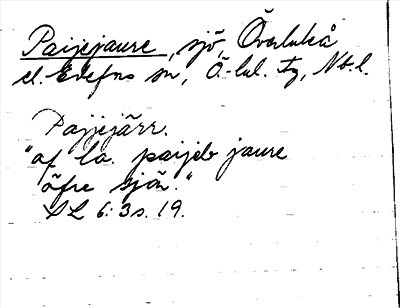 Paijejaure, sjö, Överluleå
el. Edefors sn, Ö-lul. tg, Nb. l.
Pajjejärr.
"af la. paijeb jaure
öfre sjön."
SL 6: 3 s. 19.